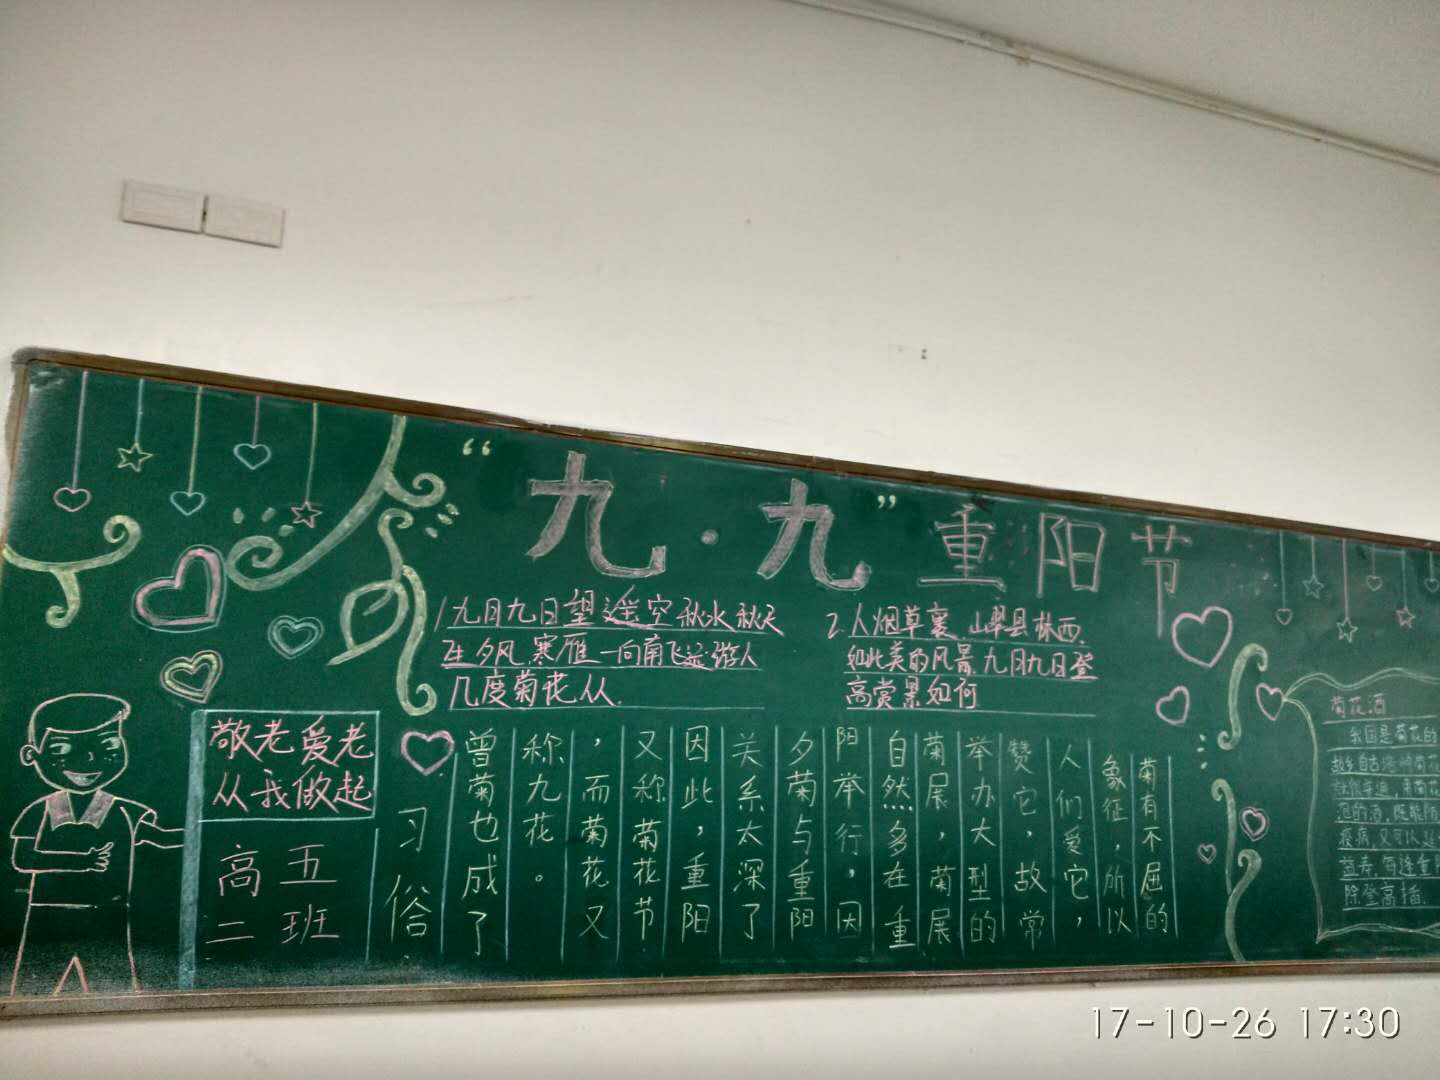 “九·九”重阳节
1.九月九日望遥空 秋水秋天
生夕风.寒雁一向南飞远.游人
几度菊花丛.
2.人烟草 山 县林西,
如此美的风景,九月九日登
高赏景如何
敬老爱老
从我做起
高二
五班
菊有不屈的
象征,所以
人们爱它,
赞它,故常
举办大型的
菊展,菊展
自然多在重
阳举行,因
夕菊与重阳
关系太深了
因此,重阳
又称菊花节
,而菊花又
称九花。
曾菊也成了
习俗.
菊花酒
我国是菊花的
故乡自古培种菊花
泡的酒,既能防
疫病,又可以延
益寿.每逢重
除登高插.
17-10-26 17:30